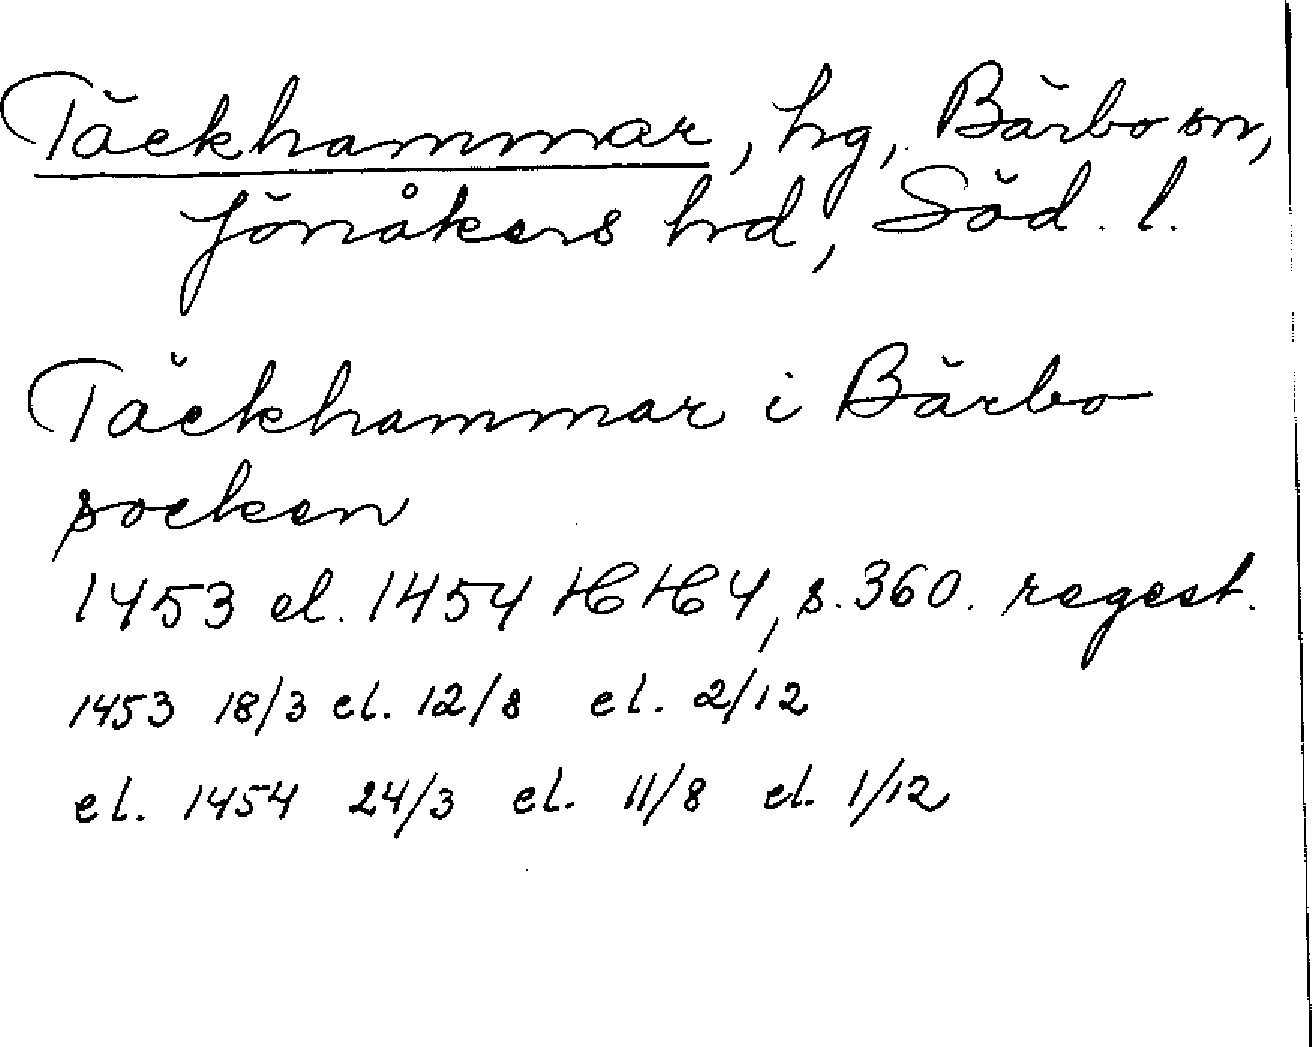 Täckhammar, hg, Bärbo sn,
Jönåkers hd, Söd. l.
Täckhammar i Bärbo
socken
1453 el. 1454 HH 4, s. 360. regest.
1453 18/3 el. 12/8 el. 2/12
el. 1454 24/3 el. 11/8 el. 1/12